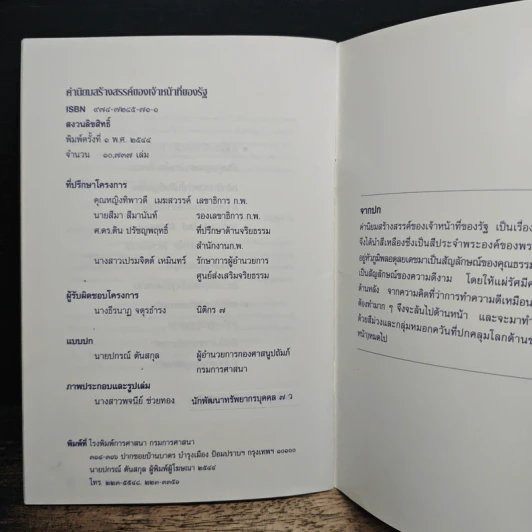 ค่านิยมสร้างสรรค์ของเจ้าหน้าที่ของรัฐ
ISBN ๙๗๔-๗๒๔๕-๗๑-๑
สงวนลิขสิทธิ์
พิมพ์ครั้งที่ ๑ พ.ศ. ๒๕๔๔
จำนวน ๑๐,๗๓๗ เล่ม
ที่ปรึกษาโครงการ
คุณหญิงทิพาวดี เมฆสวรรค์ เลขาธิการ ก.พ.
นายสีมา สีมานันท์ รองเลขาธิการ ก.พ.
ศ.ดร.ติน ปรัชญพฤทธิ์ ที่ปรึกษาด้านจริยธรรม
สำนักงานก.พ.
นางสาวเปรมจิตต์ เหมินทร์ รักษาการผู้อำนวยการ
ศูนย์ส่งเสริมจริยธรรม
ผู้รับผิดชอบโครงการ
นางธีรนาฏ จตุรธำรง นิติกร ๗
แบบปก
นายปกรณ์ ตันสกุล ผู้อำนวยการกองศาสนูปถัมภ์
กรมการศาสนา
ภาพประกอบและรูปเล่ม
นางสาวพจนีย์ ช่วยทอง นักพัฒนาทรัพยากรบุคคล ๗ ว
พิมพ์ที่ โรงพิมพ์การศาสนา กรมการศาสนา
๓๑๔-๓๑๖ ปากซอยบ้านบาตร บำรุงเมือง ป้อมปราบฯ กรุงเทพฯ ๑๐๑๐๐
นายปกรณ์ ตันสกุล ผู้พิมพ์ผู้โฆษณา ๒๕๔๔
โทร. ๒๒๓-๕๕๔๘, ๒๒๓-๓๓๕๑
จากปก
ค่านิยมสร้างสรรค์ของเจ้าหน้าที่ของรัฐ เป็นเรื่อง
จึงได้นำสีเหลืองซึ่งเป็นสีประจำพระองค์ของพร
อยู่หัวภูมิพลอดุลยเดชมาเป็นสัญลักษณ์ของคุณธรรม
เป็นสัญลักษณ์ของความดีงาม โดยให้แผ่รัศมีด
ด้านหลัง จากความคิดที่ว่าการทำความดีเหมือน
ต้องทำมาก ๆ จึงจะล้นไปด้านหน้า และจะมาทำ
ด้วยสีม่วงและกลุ่มหมอกควันที่ปกคลุมโลกด้านข
หน้าหมดไป